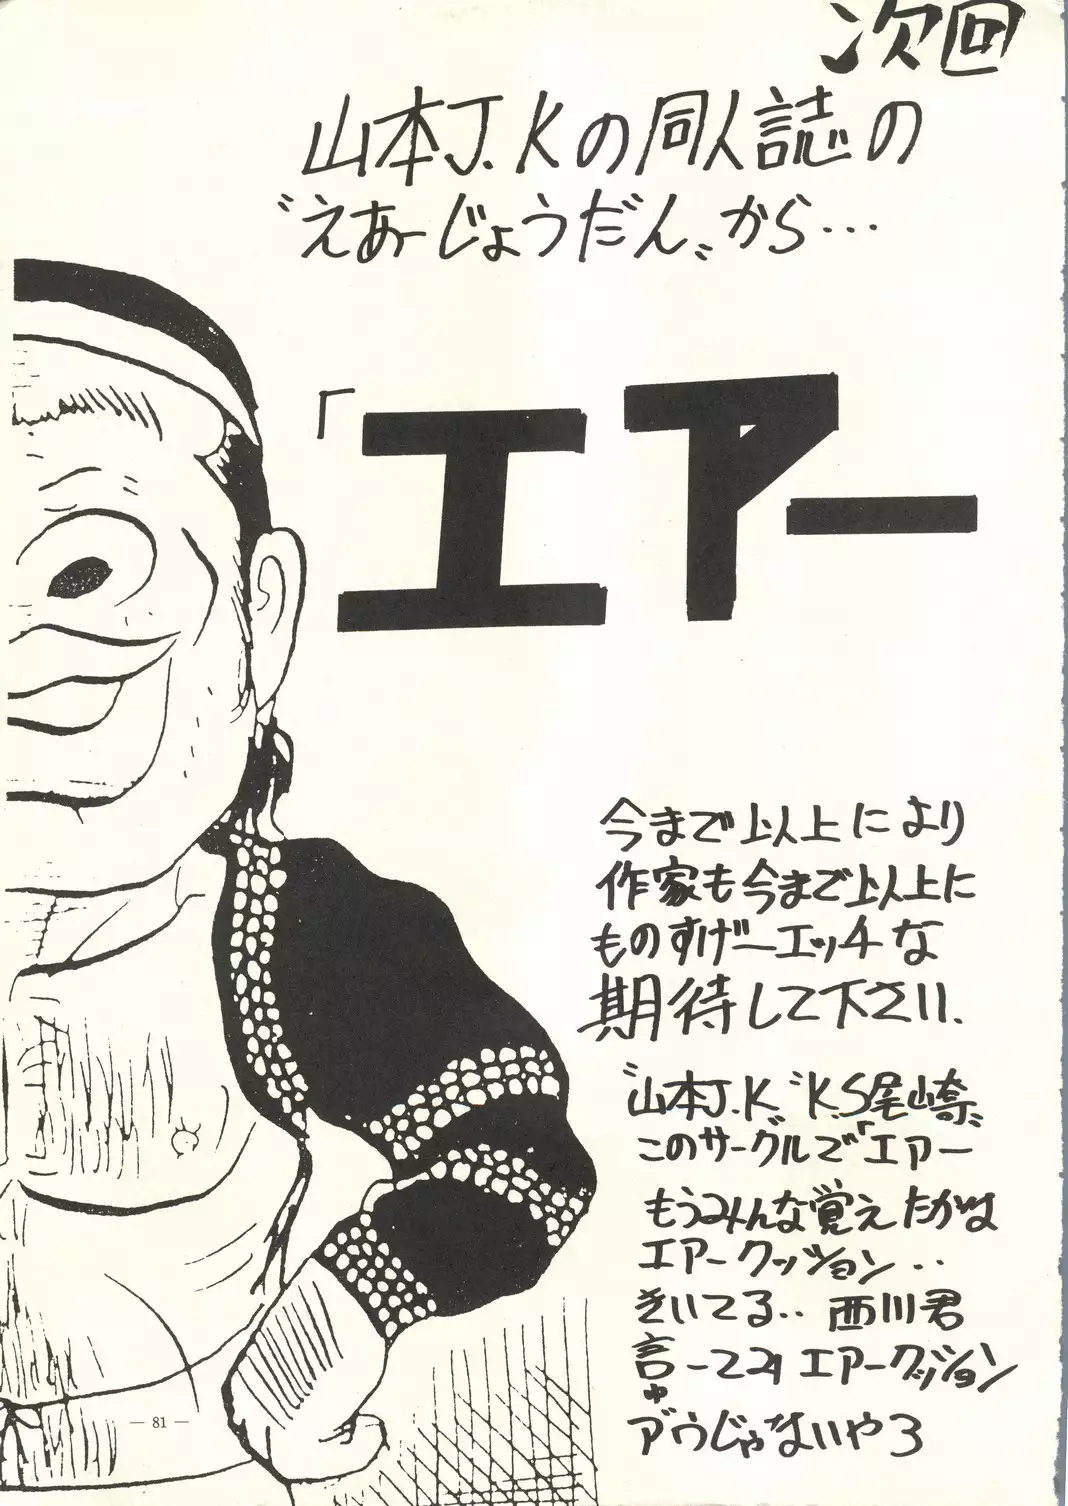 次回
山本J.Kの同人誌の
〝えあーじょうだん〟から…
「エアー
今まで以上により
作家も今まで以上に
ものすげーエッチな
期待して下さい.
〝山本J.K〟〝K.S尾崎〟
このサークルで「エアー
もうみんな覚えたかな
エアークッション‥
きいてる‥西川君
エアークッション
じゃないやろ
— 81 —